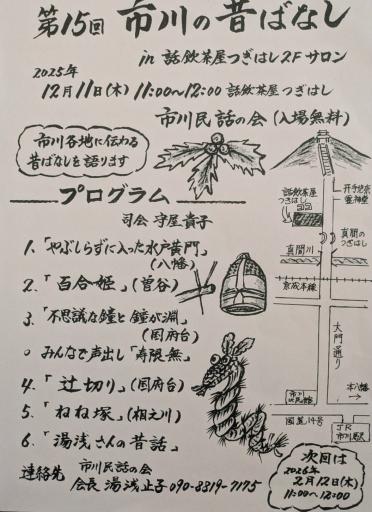 第15回 市川の昔ばなし
in 話飲茶屋つぎはし2Fサロン
2025年
12月11日(木) 11:00〜12:00 話飲茶屋つぎはし
市川民話の会 (入場無料)
市川各地に伝わる
昔ばなしを語ります
プログラム
司会 守屋貴子
1.「やぶしらずに入った水戸黄門」
(八幡)
2.「百合姫」(曽谷)
3.「不思議な鐘と鐘が淵」
(国府台)
○ みんなで声出し「寿限無」
4.「辻切り」(国府台)
5.「ねね塚」(相之川)
6.「湯浅さんの昔話」
連絡先 市川民話の会
会長 湯浅止子 090-8319-7175
話飲茶屋
つぎはし
手児奈
霊神堂
真間の
つぎはし
真間川
京成本線
大門通り
市川
市民談
本八幡
→
国道14号
JR
市川駅
次回は
2026年
2月12日(木)
11:00〜12:00